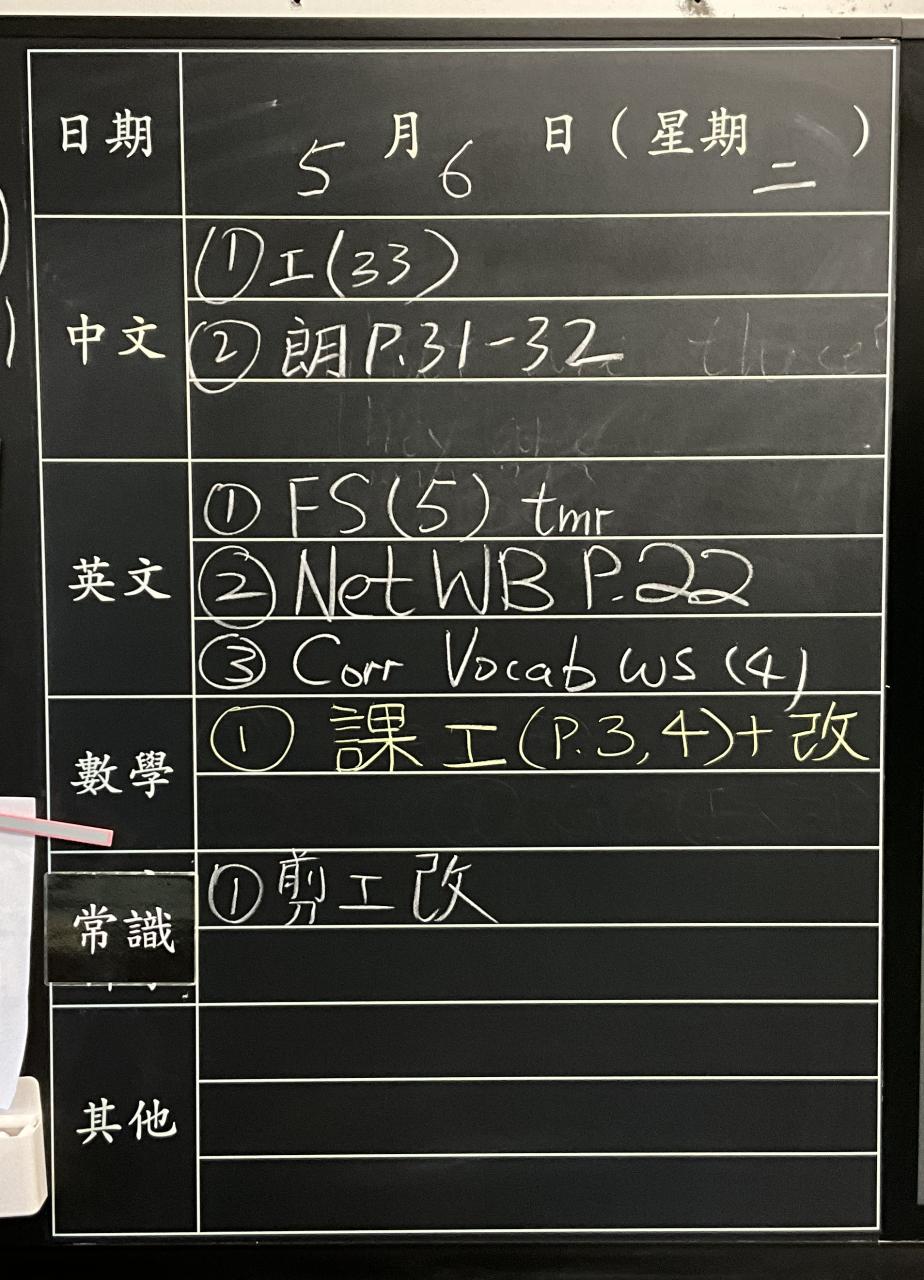 日期 5月6日(星期二)
中文 ①工(33)
②朗P.31-32
英文 ①FS(5) tmr
②Net WB P.22
③Corr Vocab WS (4)
數學 ①課工(P.3,4)+改
常識 ①剪工改
其他